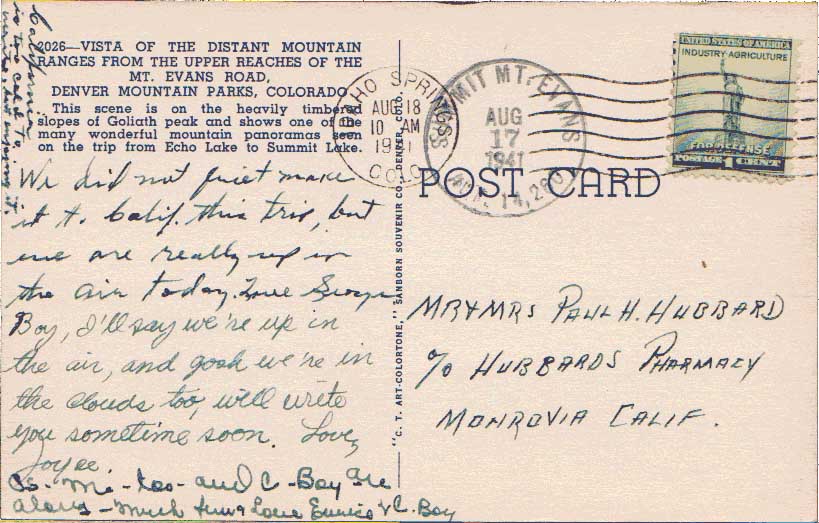 2026—VISTA OF THE DISTANT MOUNTAIN
RANGES FROM THE UPPER REACHES OF THE
MT. EVANS ROAD,
DENVER MOUNTAIN PARKS, COLORADO
This scene is on the heavily timbered
slopes of Goliath peak and shows one of the
many wonderful mountain panoramas seen
on the trip from Echo Lake to Summit Lake.
We did not quiet make
it to Calif. this trip, but
we are really up in
the air today. Love
Boy, I'll say we're up in
the air, and gosh we're in
the clouds too, we'll write
you sometime soon. Love,
Joyce
Me - too - and C - Boy are
along - much fun & Love Eunice & C. Boy
California
is too
"C. T. ART-COLORTONE," SANBORN SOUVENIR CO., DENVER, COLO.
IDAHO SPRINGS
AUG 18
10 AM
1941
COLO.
SUMMIT MT. EVANS
AUG
17
1941
14,260
UNITED STATES OF AMERICA
INDUSTRY-AGRICULTURE
FOR DEFENSE
POSTAGE 1 CENT
POST CARD
MR & MRS PAUL H. HUBBARD
c/o HUBBARDS PHARMACY
MONROVIA CALIF.